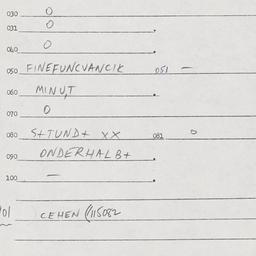 030 0
031 0
040 0
050 FINEFUNCVANCIK 051 —
060 MINU,T
070 0
080 S+TUND+ XX 081 0
090 ONDERHALB+
100 —
101 CEHEN (/115082